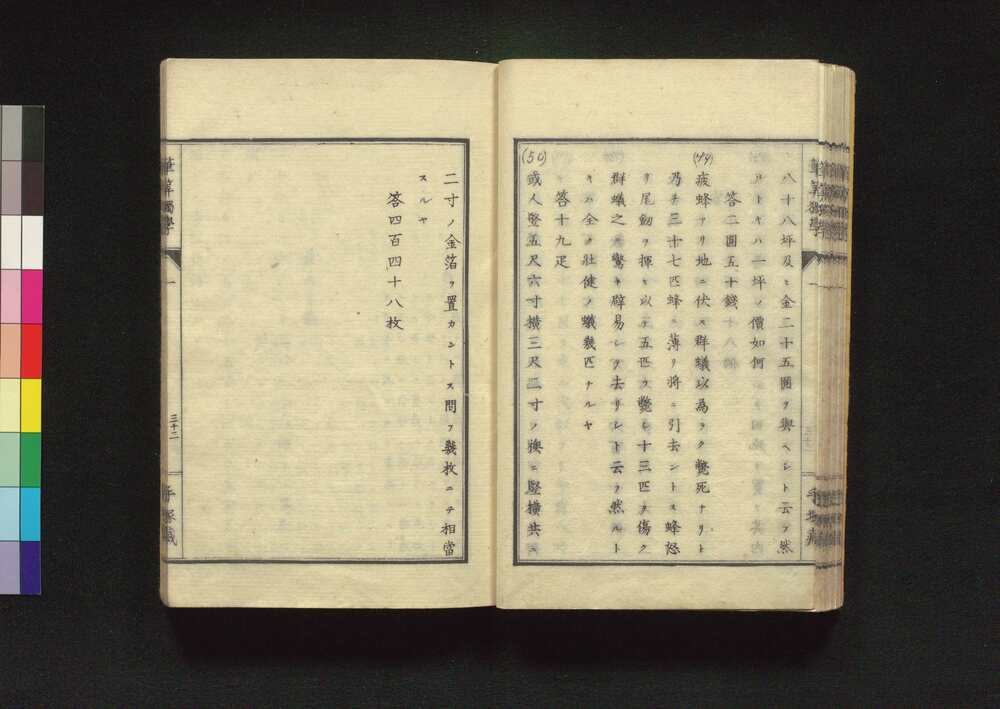 八十八坪及ヒ金二十五圓ヲ與ヘント云フ然
ルトキハ一坪ノ價如何
答二圓五十錢
(49)
疲蜂アリ地ニ伏ス群蟻以為ラク斃死ナリト
乃チ三十七匹蜂ニ薄リ將ニ引去ントス蜂怒
リ尾劔ヲ揮ヒ以テ五匹ヲ斃シ十三匹ヲ傷ク
群蟻之ニ驚キ辟易シテ去リシト云フ然ルト
キハ全ク壯健ノ蟻幾匹ナルヤ
答十九疋
(50)
或人竪五尺六寸橫三尺二寸ノ襖ニ竪橫共ニ
二寸ノ金箔ヲ置カントス問フ幾枚ニテ相當
スルヤ
答四百四十八枚
筆算獨學
三十二